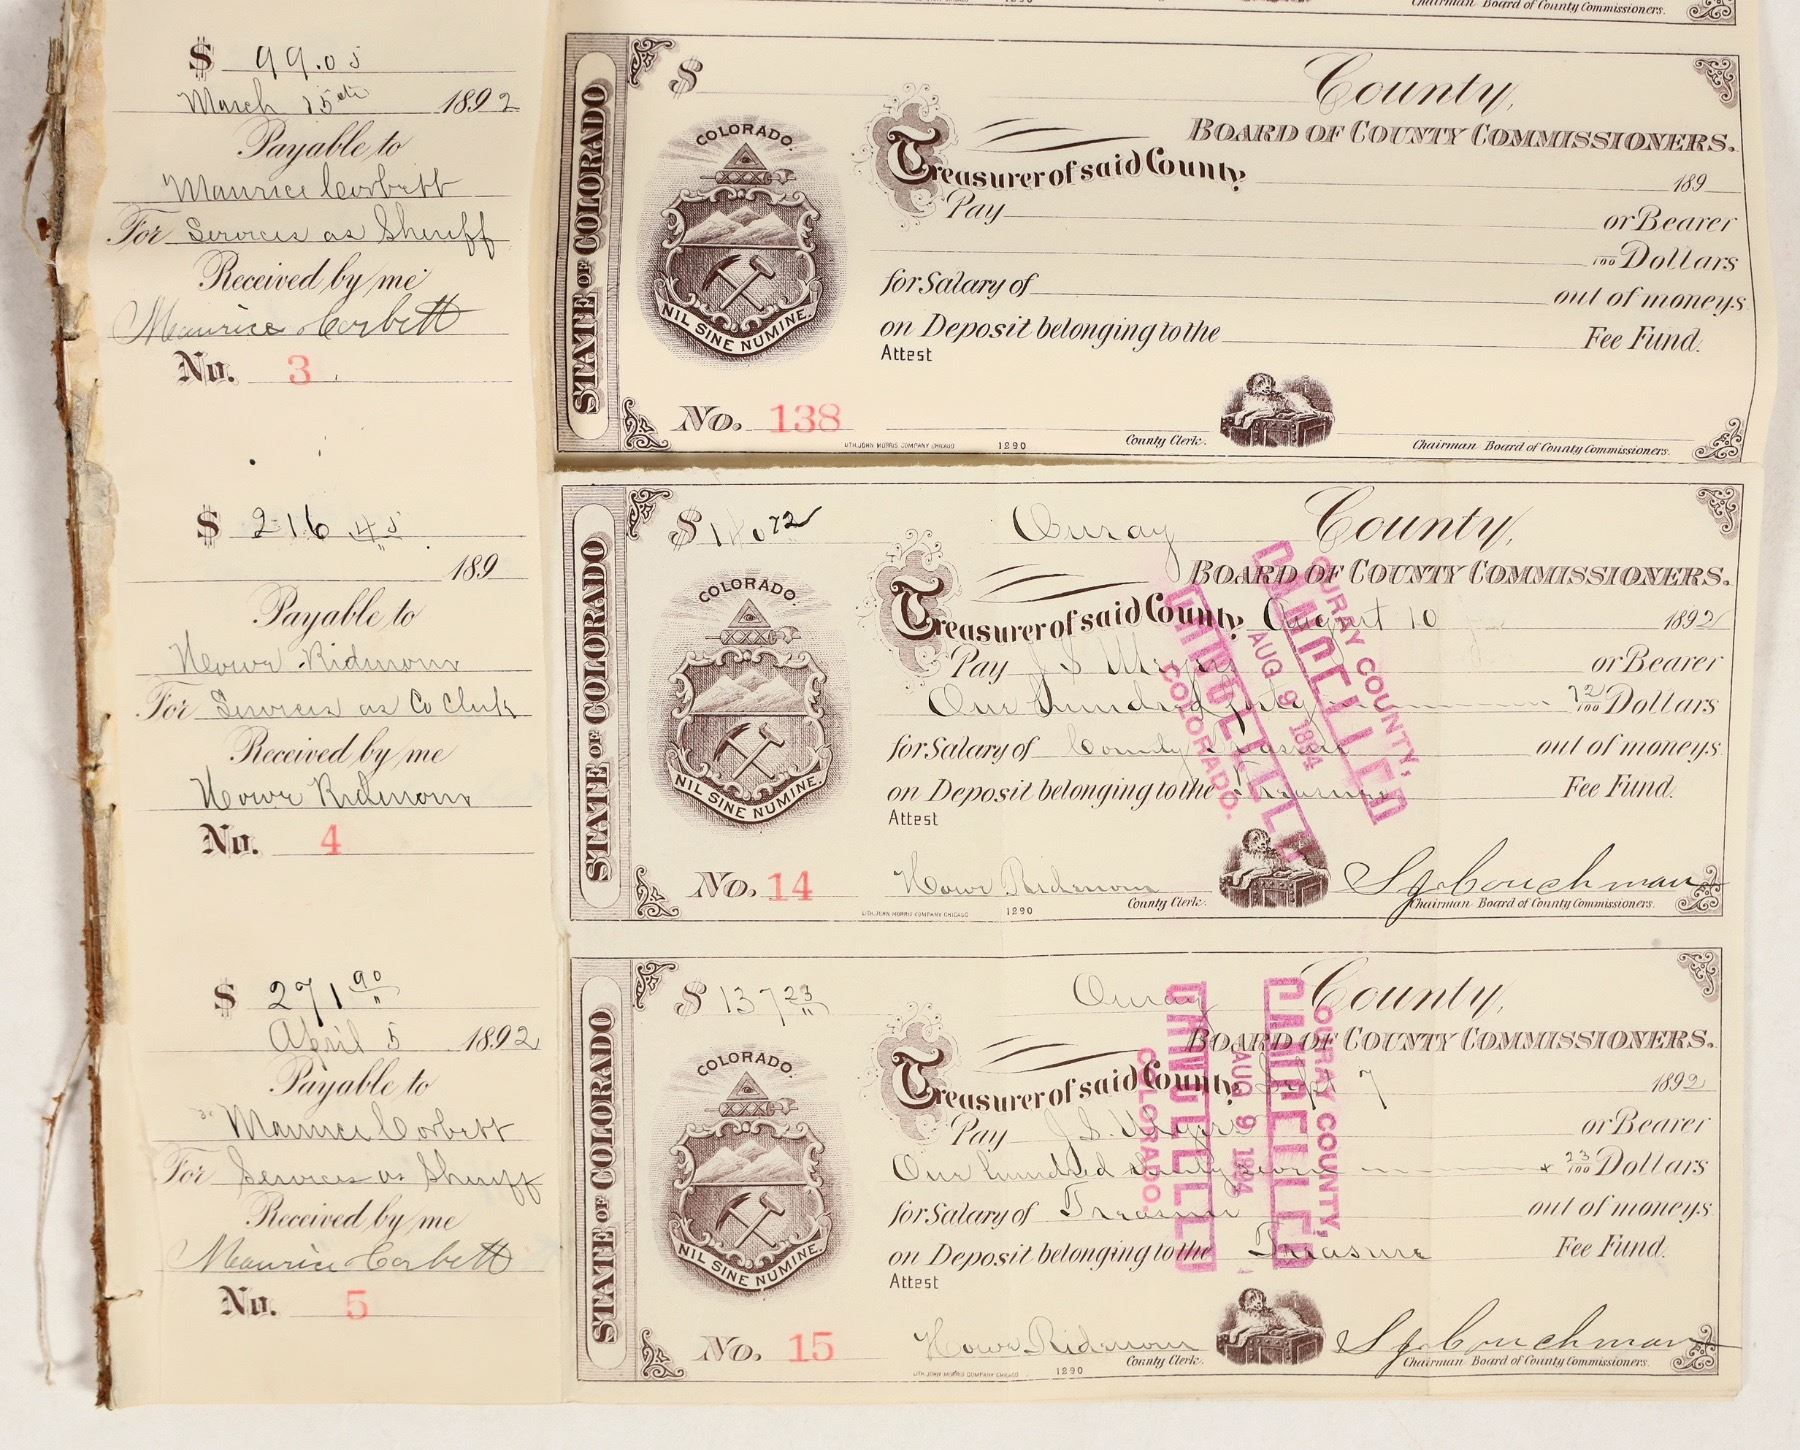 Chairman Board of County Commissioners.
1290
$ 99.05
March 15th 1892
Payable to
Maurice Corbett
For Services as Sheriff
Received by me
Maurice Corbett
No. 3
$ 216.45
189
Payable to
Howr Ridmour
For Services as Co Clerk
Received by me
Howr Ridmour
No. 4
$ 271 90
April 5 1892
Payable to
Maurice Corbett
For Services as Sheriff
Received by me
Maurice Corbett
No. 5
STATE OF COLORADO
$
County,
BOARD OF COUNTY COMMISSIONERS.
COLORADO.
Treasurer of said County,
189
Pay
or Bearer
100 Dollars
for Salary of
out of moneys
on Deposit belonging to the
Fee Fund.
Attest
NIL SINE NUMINE.
No. 138
LITH. JOHN MORRIS COMPANY CHICAGO
1290
County Clerk.
Chairman Board of County Commissioners.
STATE OF COLORADO
$ 72
Ouray County,
BOARD OF COUNTY COMMISSIONERS.
COLORADO.
Treasurer of said County, August 10 1892
Pay J S Myers or Bearer
One hundred 72/100 Dollars
for Salary of County Treasurer out of moneys
on Deposit belonging to the Treasurer Fee Fund.
Attest
NIL SINE NUMINE.
No. 14
Howr Ridmour
S J Couchman
LITH. JOHN MORRIS COMPANY CHICAGO
1290
County Clerk.
Chairman Board of County Commissioners.
OURAY COUNTY,
CANCELLED
AUG 9 1894
CANCELLED
COLORADO.
STATE OF COLORADO
$ 137 23
Ouray County,
BOARD OF COUNTY COMMISSIONERS.
COLORADO.
Treasurer of said County, Sept 7 1892
Pay J. S. Myers or Bearer
One hundred thirty seven 23/100 Dollars
for Salary of Treasurer out of moneys
on Deposit belonging to the Treasure Fee Fund.
Attest
NIL SINE NUMINE.
No. 15
Howr Ridmour
S J Couchman
LITH. JOHN MORRIS COMPANY CHICAGO
1290
County Clerk.
Chairman Board of County Commissioners.
OURAY COUNTY,
CANCELLED
AUG 9 1894
CANCELLED
COLORADO.